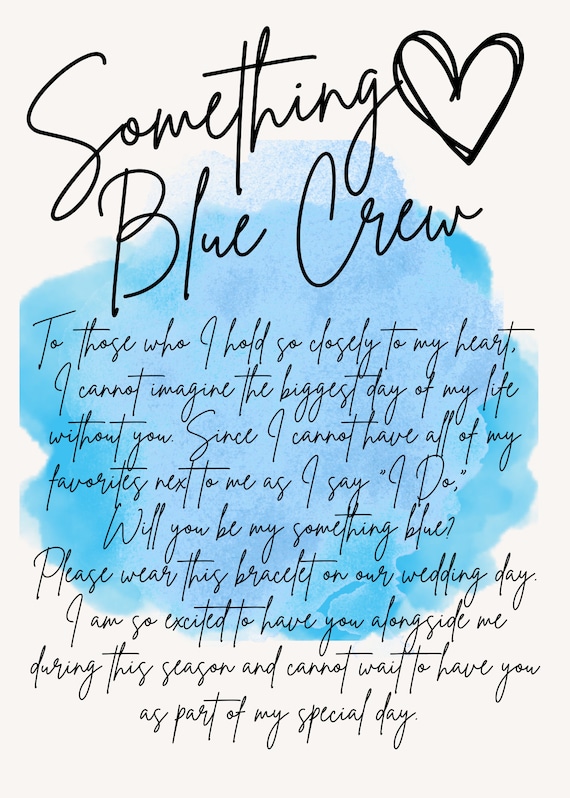 Something
Blue Crew
To those who I hold so closely to my heart,
I cannot imagine the biggest day of my life
without you. Since I cannot have all of my
favorites next to me as I say "I Do,"
Will you be my something blue?
Please wear this bracelet on our wedding day.
I am so excited to have you alongside me
during this season and cannot wait to have you
as part of my special day.